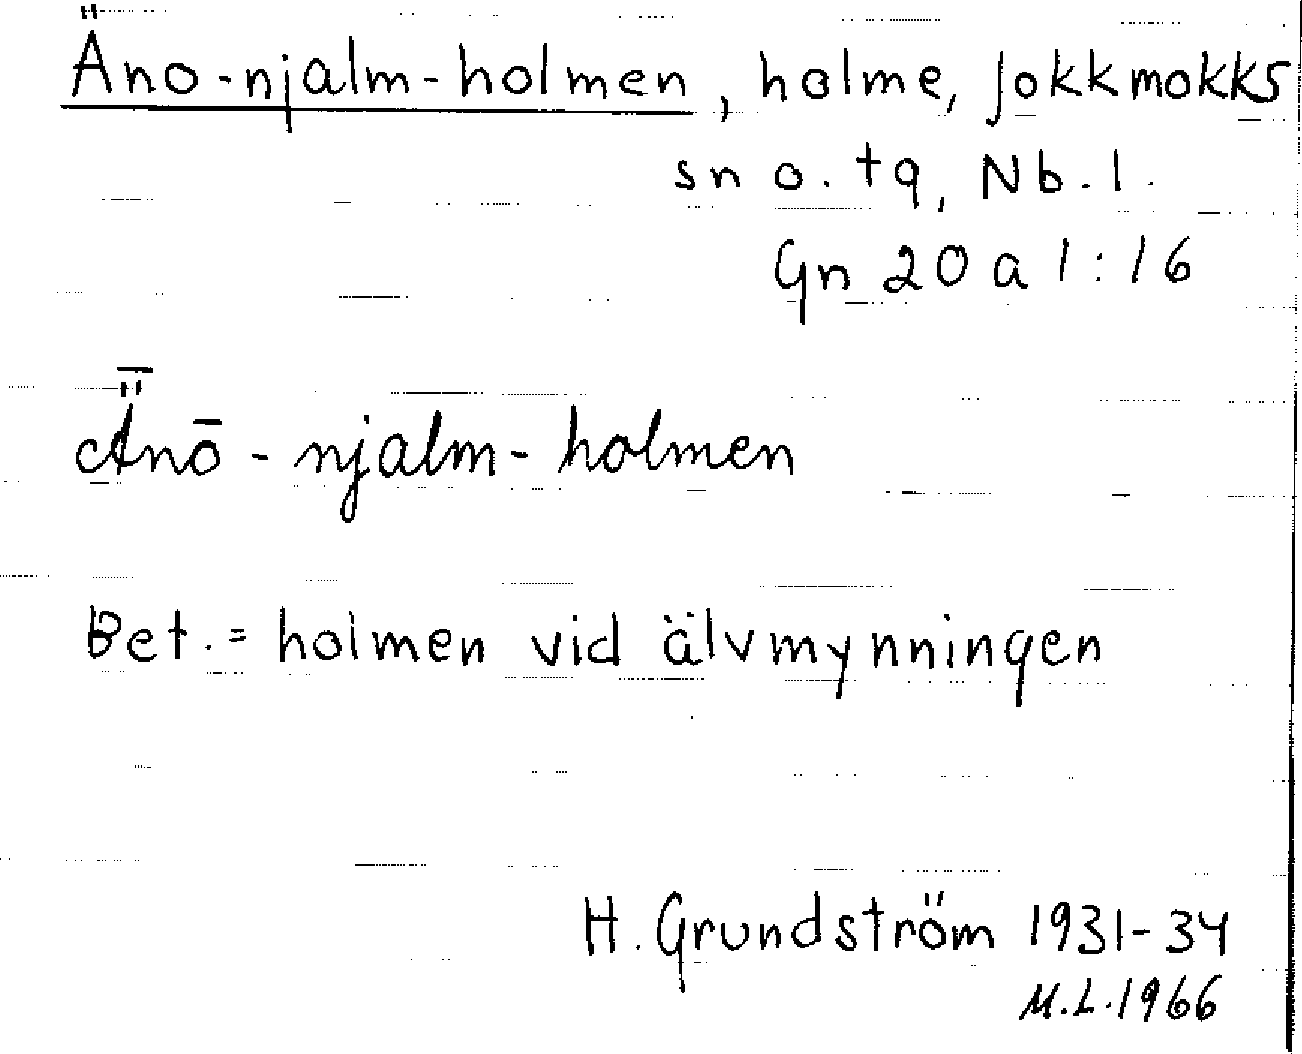 Äno-njalm-holmen, holme, Jokkmokks
sn o. tg, Nb. l.
Gn 20 a 1:16
Ǟnō-njalm-holmen
Bet. = holmen vid älvmynningen
H. Grundström 1931-34
M.L. 1966